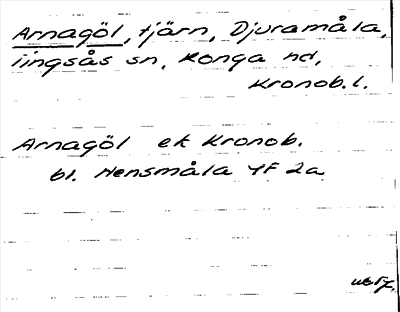 Arnagöl, tjärn, Djuramåla,
iingsås sn, Konga hd,
Kronob. l.
Arnagöl ek Kronob.
bl. Hensmåla 4F 2a